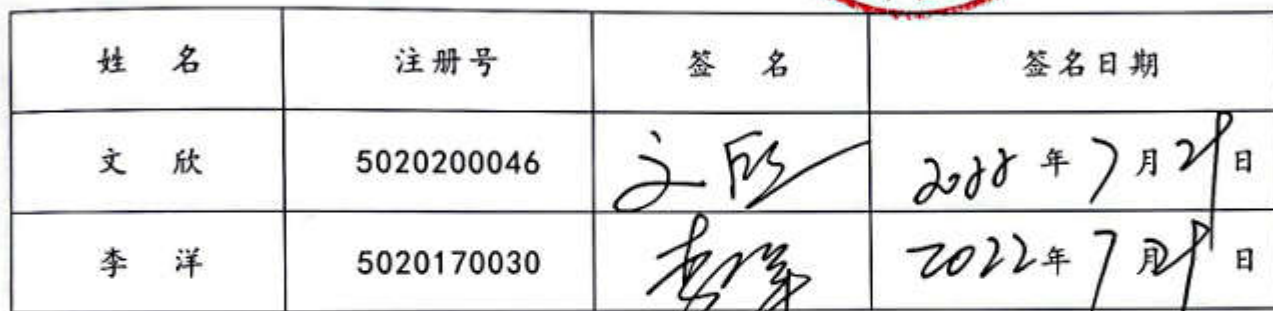 姓 名 注册号 签 名 签名日期
文 欣 5020200046 文欣 2022年7月29日
李 洋 5020170030 李洋 2022年7月29日